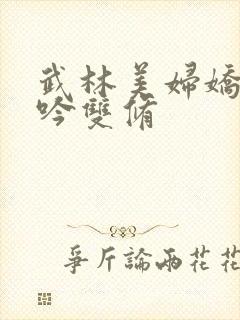 武林美婦嬌
吟雙脩
爭斤論兩花花